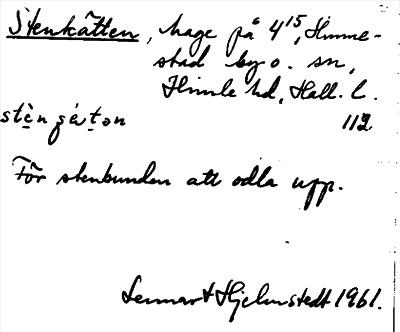 Stenkätten, hage på 4¹⁵, Himme-
stad by o. sn,
Himle hd, Hall. l.
112
För stenbunden att odla upp.
Lennart Hjelmstedt 1961.